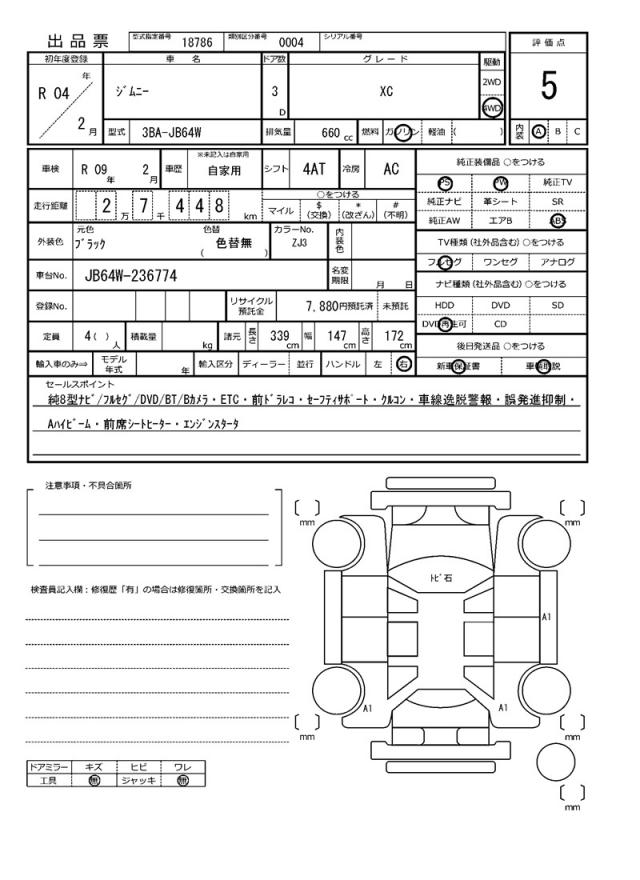 出品票 型式指定番号 18786 類別区分番号 0004 シリアル番号
評価点
5
初年度登録 車名 ドア数 グレード 駆動
R 04 年 2 月
ジムニー 3 D XC 2WD 4WD
型式 3BA-JB64W 排気量 660 cc 燃料 ガソリン 軽油 ( )
内装 A B C
車検 R 09 年 2 月 車歴 ※未記入は自家用 自家用 シフト 4AT 冷房 AC
走行距離 2 万 7 千 4 4 8 km
○をつける
マイル $ (交換) * (改ざん) # (不明)
外装色 元色 ブラック 色替 ( 色替無 ) カラーNo. ZJ3 内装色
車台No. JB64W-236774 名変期限 月 日
登録No. リサイクル預託金 7,880円預託済 未預託
定員 4( ) 人 積載量 kg 諸元 長さ 339 cm 幅 147 cm 高さ 172 cm
輸入車のみ⇒ モデル年式 年 輸入区分 ディーラー 並行 ハンドル 左 右
純正装備品 ○をつける
PS PW 純正TV
純正ナビ 革シート SR
純正AW エアB ABS
TV種類 (社外品含む) ○をつける
フルセグ ワンセグ アナログ
ナビ種類 (社外品含む) ○をつける
HDD DVD SD
DVD再生可 CD
後日発送品 ○をつける
新車保証書 車載取説
セールスポイント
純8型ナビ/フルセグ/DVD/BT/Bカメラ・ETC・前ドラレコ・セーフティサポート・クルコン・車線逸脱警報・誤発進抑制・
Aハイビーム・前席シートヒーター・エンジンスタータ
注意事項・不具合箇所
検査員記入欄：修復歴「有」の場合は修復箇所・交換箇所を記入
ドアミラー キズ ヒビ ワレ
工具 無 ジャッキ 無
mm
mm
トビ石
A1
A1
A1
mm
mm
mm